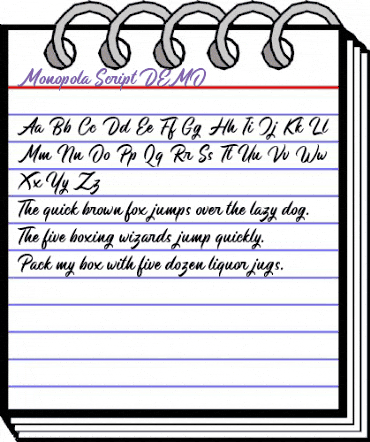 Monopola Script DEMO
Aa Bb Cc Dd Ee Ff Gg Hh Ii Jj Kk Ll
Mm Nn Oo Pp Qq Rr Ss Tt Uu Vv Ww
Xx Yy Zz
The quick brown fox jumps over the lazy dog.
The five boxing wizards jump quickly.
Pack my box with five dozen liquor jugs.